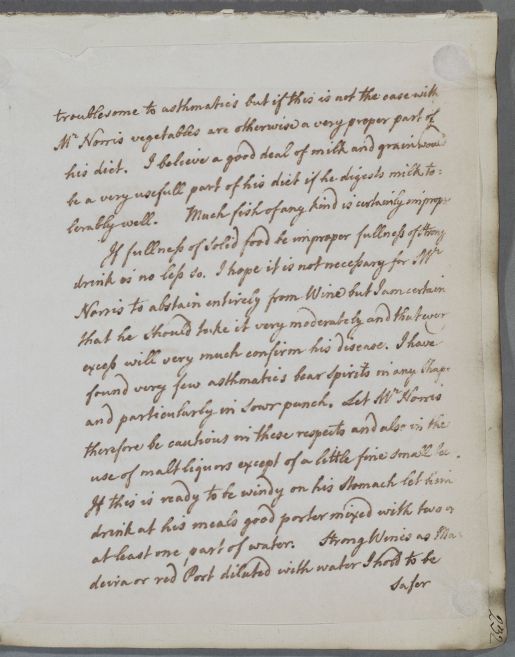 troublesome to asthmatics but if this is not the case with
Mr Norris vegetables are otherwise a very proper part of
his diet. I believe a good deal of milk and grain would
be a very usefull part of his diet if he digests milk to=
lerably well. Much fish of any kind is certainly improp
If fullness of solid food be improper fullness of strong
drink is no less so. I hope it is not necessary for Mr
Norris to abstain entirely from Wine but I am certain
that he should take it very moderately and that ever
excess will very much confirm his disease. I have
found very few asthmatics bear spirits in any Shap
and particularly in sowr punch. Let Mr Norris
therefore be cautious in these respects and also in the
use of malt liquors except of a little fine small be
If this is ready to be windy on his stomach let him
drink at his meals good porter mixed with two or
at least one part of water. Strong Wines as Ma
deira or red Port diluted with water I hold to be
safer